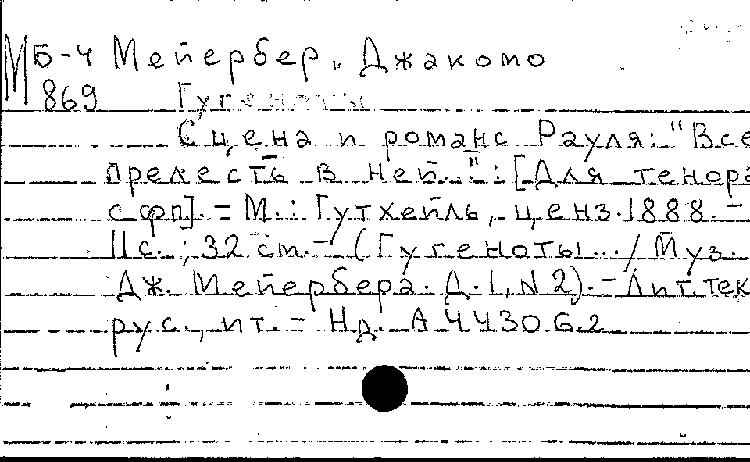 МБ-4 Мейербер, Джакомо
869 Гугеноты
Сцена и романс Рауля: "Все
прелесть в ней..." : [Для тенора
с фп]. - М. : Гутхейль, ценз. 1888. -
11с. ; 32 см. - (Гугеноты... / Муз.
Дж. Мейербера. Д. 1, N 2). - Лит. тек
рус., ит. - Нд. А 4430 Г.2